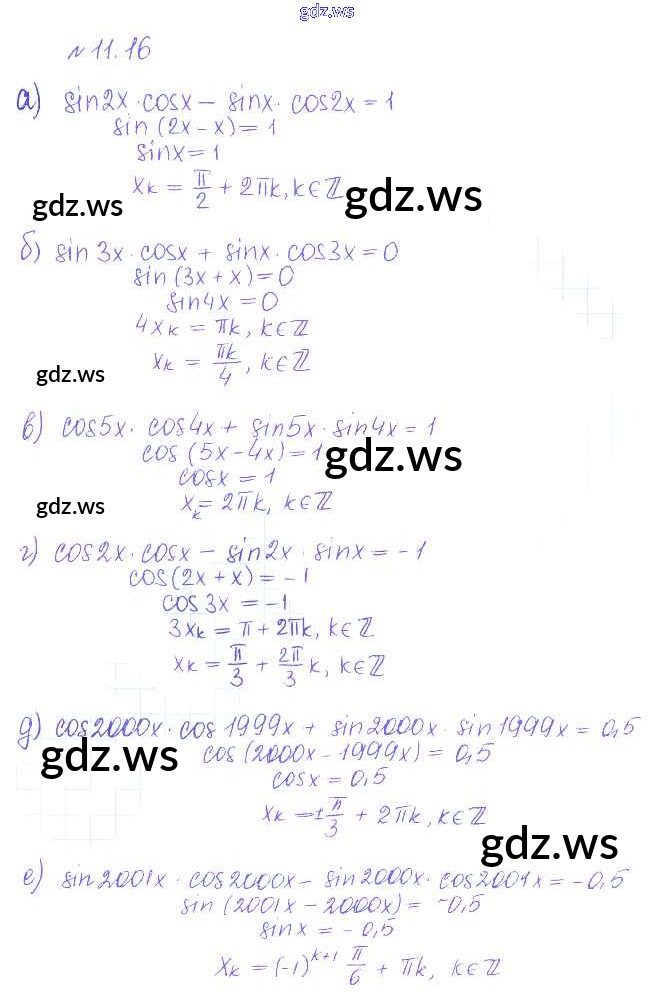 gdz.ws
№ 11.16
а) sin2x·cosx – sinx·cos2x = 1
sin (2x – x) = 1
sinx = 1
xₖ = π/2 + 2πk, k∈ℤ
gdz.ws gdz.ws
б) sin3x·cosx + sinx·cos3x = 0
sin (3x + x) = 0
sin4x = 0
4xₖ = πk, k∈ℤ
xₖ = πk/4, k∈ℤ
gdz.ws
в) cos5x·cos4x + sin5x·sin4x = 1
cos (5x – 4x) = 1
gdz.ws
cosx = 1
xₖ = 2πk, k∈ℤ
gdz.ws
г) cos2x·cosx – sin2x·sinx = –1
cos(2x + x) = –1
cos3x = –1
3xₖ = π + 2πk, k∈ℤ
xₖ = π/3 + 2π/3 k, k∈ℤ
д) cos2000x·cos1999x + sin2000x·sin1999x = 0,5
cos (2000x – 1999x) = 0,5
gdz.ws
cosx = 0,5
xₖ = ±π/3 + 2πk, k∈ℤ
gdz.ws
е) sin2001x·cos2000x – sin2000x·cos2001x = –0,5
sin (2001x – 2000x) = –0,5
sinx = –0,5
xₖ = (–1)ᵏ⁺¹ π/6 + πk, k∈ℤ